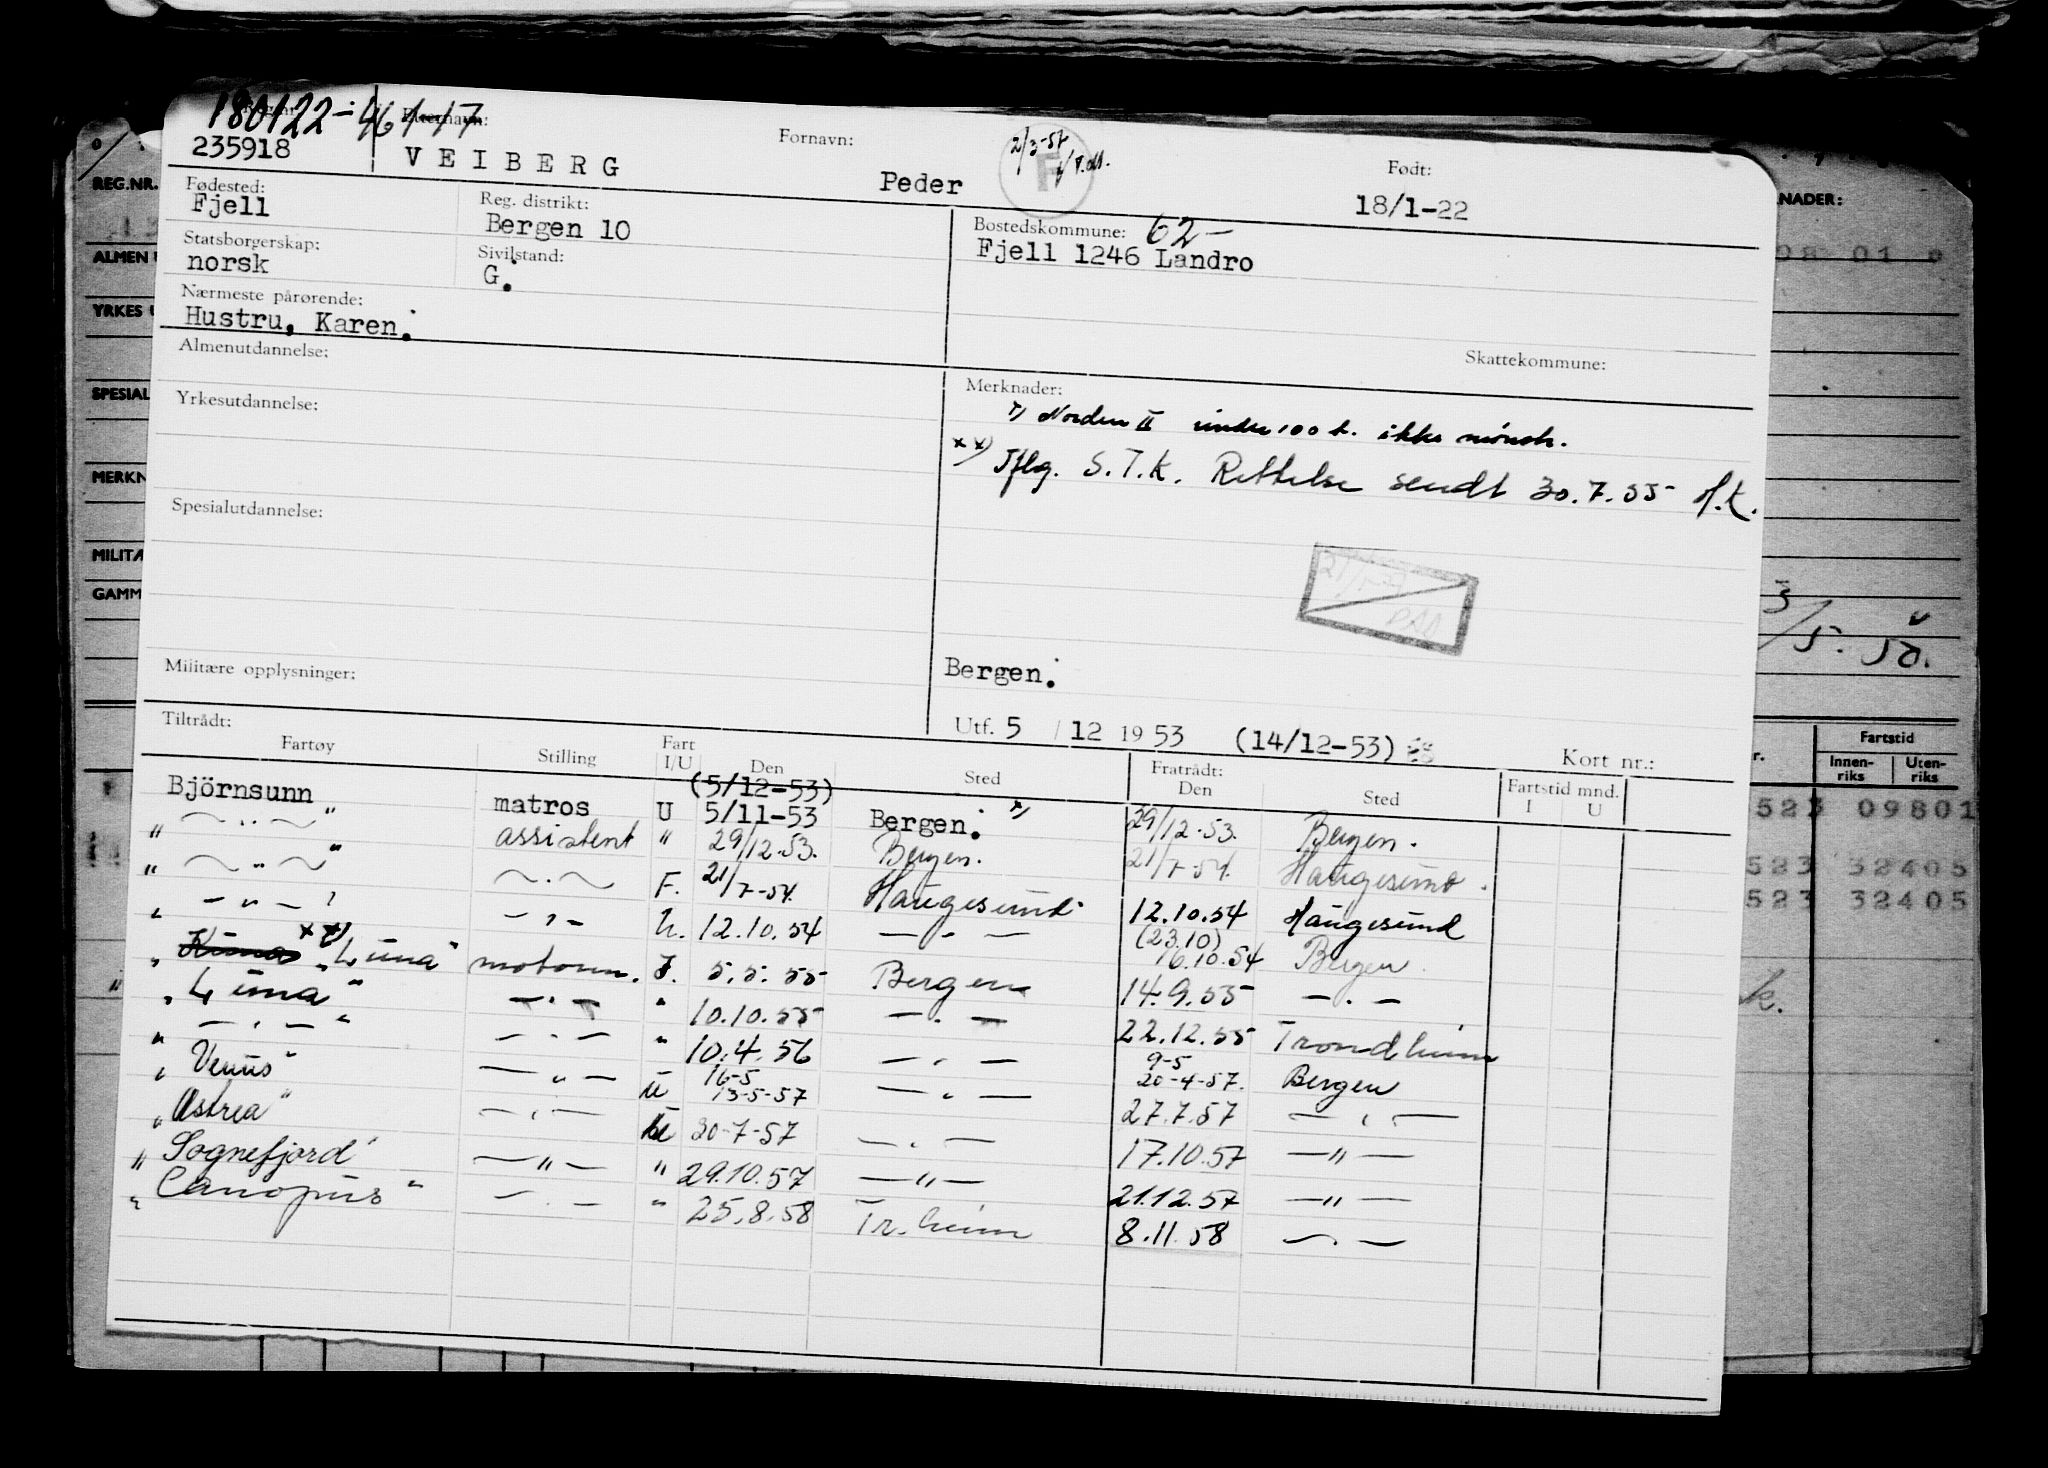 180122-46117
Reg.nr. Etternavn: Fornavn: Født:
235918 VEIBERG Peder 18/1-22
2/3-57
F
Fødested: Reg. distrikt: Bostedskommune: 62-
Fjell Bergen 10 Fjell 1246 Landro
Statsborgerskap: Sivilstand:
norsk G.
Nærmeste pårørende:
Hustru, Karen.
Skattekommune:
Almenutdannelse: Merknader:
Norden II under 100 t. ikke mönstr.
Yrkesutdannelse:
xx) Iflg. S.T.K. Rettelse sendt 30.7.55 H.K.
Spesialutdannelse:
Militære opplysninger: Bergen.
Utf. 5 / 12 1953 (14/12-53) Kort nr.:
Tiltrådt: Fratrådt: Fartstid mnd.
Fartøy Stilling Fart I/U Den Sted Den Sted I U
(5/12-53)
Björnsunn matros U 5/11-53 Bergen. 29/12-53. Bergen.
" — " — " assistent " 29/12-53. Bergen. 21/7-54. Haugesund.
" — " — " — " — F. 21/7-54. Haugesund 12.10.54 Haugesund
" — " — " — " — U. 12.10.54 — " — (23.10) 16.10.54 Bergen
" Kuna xx) "Luna" motorm. I. 5.5.55 Bergen 14.9.55 — " —
" Luna" — " — " 10.10.55 — " — 22.12.55 Trondheim
" — " — " — " — " 10.4.56 — " — 9-5 20-4-57. Bergen
" Venus" — " — U 16-5 13-5-57 — " — 27.7.57 — " —
" Astrea" — " — 30-7-57 — " — 17.10.57 — " —
" Sognefjord" — " — " 29.10.57 — " — 21.12.57 — " —
" Canopus" — " — " 25.8.58 Tr.heim 8.11.58 — " —
REG.NR.
ALMEN
YRKES
SPESIAL
MERKN
MILITÆ
GAMM
KNADER:
08 01
3/5.50.
Fartstid
Innen-riks Uten-riks
523 09801
523 32405
523 32405
k.